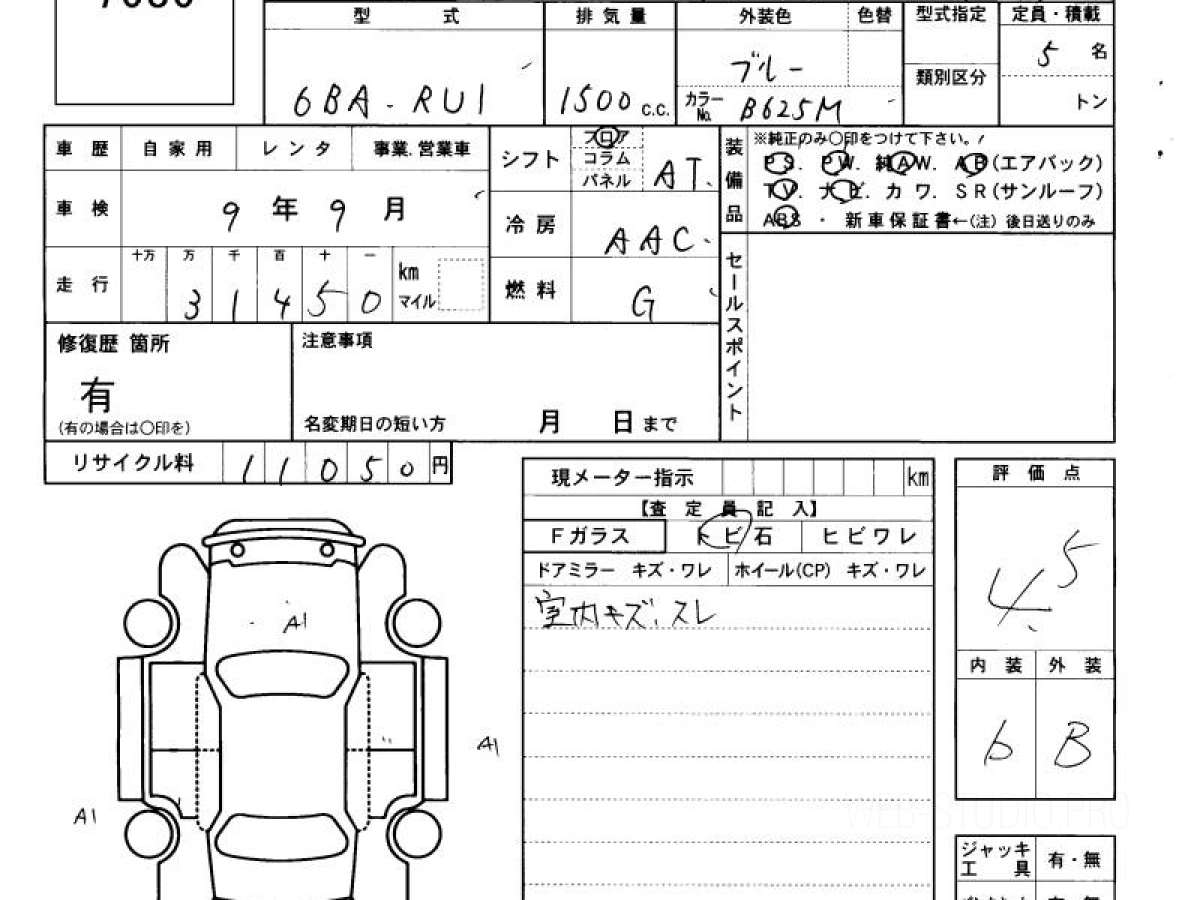 型 式 排気量 外装色 色替 型式指定 定員・積載
6BA-RU1 1500 c.c. ブルー 5 名
カラーNo. B625M 類別区分 トン
車歴 自家用 レンタ 事業.営業車
シフト フロア コラム パネル AT
装備品 ※純正のみ〇印をつけて下さい。
PS. PW. 純AW. AB(エアバック)
TV. ナビ. カワ. SR(サンルーフ)
ABS ・ 新車保証書←(注) 後日送りのみ
車検 9年9月
冷房 AAC
走行 十万 万 千 百 十 一
31450 km マイル
燃料 G
セールスポイント
修復歴 箇所
有
(有の場合は〇印を)
注意事項
名変期日の短い方 月 日まで
リサイクル料 11050円
現メーター指示 km
【査定員記入】
Fガラス トビ石 ヒビワレ
ドアミラー キズ・ワレ ホイール(CP) キズ・ワレ
室内キズ、スレ
評価点
4.5
内装 外装
6 B
A1
A1
A1
WEB-STUDIO.PRO
ジャッキ
工具 有・無